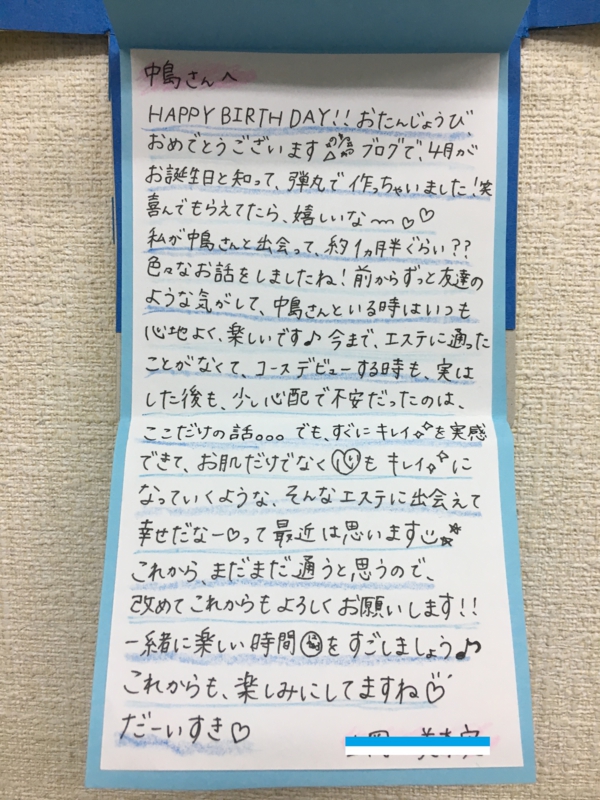 中島さんへ
HAPPY BIRTH DAY!! おたんじょうび、
おめでとうございます ブログで、4月が
お誕生日と知って、弾丸で作っちゃいました!笑
喜んでもらえてたら、嬉しいな〜♡♡
私が中島さんと出会って、約1ヵ月半ぐらい??
色々なお話をしましたね!前からずっと友達の
ような気がして、中島さんといる時はいつも
心地よく、楽しいです♪今まで、エステに通った
ことがなくて、コースデビューする時も、実は
した後も、少し心配で不安だったのは、
ここだけの話。。。でも、すぐにキレイを実感
できて、お肌だけでなく♡もキレイに
なっていくような、そんなエステに出会えて
幸せだなー♡って最近は思います
これから、まだまだ通うと思うので、
改めてこれからもよろしくお願いします!!
一緒に楽しい時間をすごしましょう♪
これからも、楽しみにしてますね♡
だーいすき♡